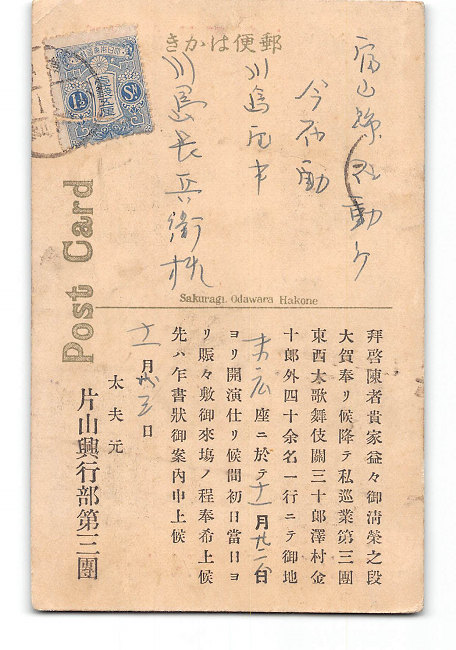 郵便はかき
大日本帝國郵便
1½ Sn.
富山縣
今石動
川島
川島長兵衛様
Post Card
Sakuragi. Odawara Hakone
拜啓陳者貴家益々御淸榮之段
大賀奉リ候降テ私巡業第三團
東西大歌舞伎關三十郎澤村金
十郎外四十余名一行ニテ御地
末広座ニ於テ十一月廿一日
ヨリ開演仕リ候間初日當日ヨ
リ賑々敷御來塲ノ程奉希上候
先ハ乍書狀御案内申上候
十一月 日
太夫元
片山興行部第三團